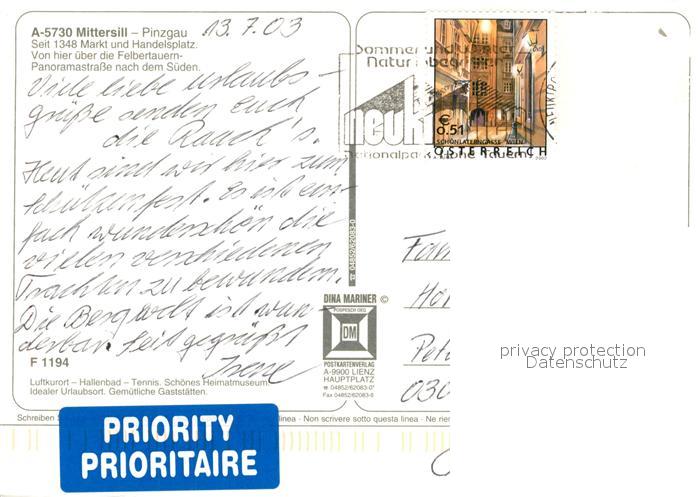 A-5730 Mittersill – Pinzgau
Seit 1348 Markt und Handelsplatz.
Von hier über die Felbertauern-
Panoramastraße nach dem Süden.
13.7.03
Viele liebe urlaubs-
grüße senden euch
die Rauch's.
Heut sind wir hier zum
Schützenfest. Es ist ein-
fach wunderschön die
vielen verschiedenen
Trachten zu bewundern.
Die Bergwelt ist wun-
derbar. Seit gegrüßt
Irene
F 1194
Luftkurort – Hallenbad – Tennis. Schönes Heimatmuseum.
Idealer Urlaubsort. Gemütliche Gaststätten.
Sommer und
Natur
neuk
Nationalpark Hohe Tauern
€ 0.51
SCHÖNLATERNGASSE WIEN
ÖSTERREICH
☎ 04852/62083-0
DINA MARINER ©
POSPESCH OEG
DM
POSTKARTENVERLAG
A-9900 LIENZ
HAUPTPLATZ
☎ 04852/62083-0*
Fax 04852/62083-6
Fam
Pet
030
Schreiben
linea - Non scrivere sotto questa linea - Ne rien
PRIORITY
PRIORITAIRE
privacy protection
Datenschutz